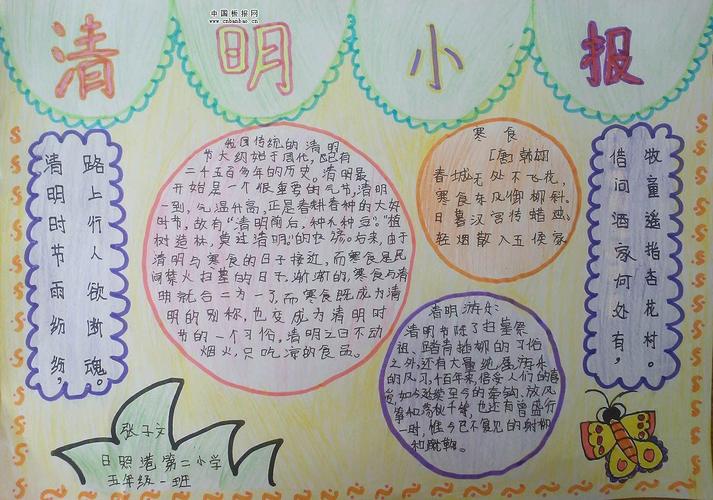 中国板报网
www.cnbanbao.cn
清明小报
清明时节雨纷纷，
路上行人欲断魂。
我国传统的清明
节大约始于周代，已有
二千五百多年的历史。清明最
开始是一个很重要的气节，清明
一到，气温升高，正是春耕春种的大好
时节，故有“清明前后，种瓜种豆”。“植
树造林，莫过清明”的农谚。后来，由于
清明与寒食的日子接近，而寒食是民
间禁火扫墓的日子，渐渐的，寒食与清
明就合二为一了，而寒食既成为清
明的别称，也变成为清明时
节的一个习俗，清明之日不动
烟火，只吃凉的食品。
寒食
[唐]韩翃
春城无处不飞花，
寒食东风御柳斜。
日暮汉宫传蜡烛，
轻烟散入五侯家
借问酒家何处有，
牧童遥指杏花村。
清明
清明节除了扫墓祭
祖、踏青插柳的习俗
之外，还有大量
的风习，千百年来，倍受人们的喜
爱，如今 至今的牵钩、放风
筝和荡秋千等，也还有曾盛行
一时，惟今已不复见的射柳
和蹴鞠。
张子文
日照港第二小学
五年级一班